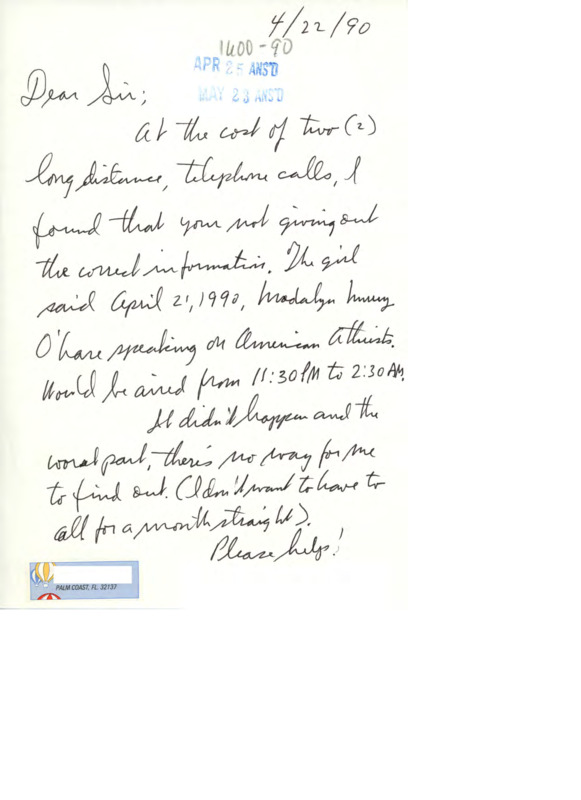 4/22/90
1400-90
APR 25 ANS'D
MAY 23 ANS'D
Dear Sir;
At the cost of two (2)
long distance, telephone calls, I
found that your not giving out
the correct information. The girl
said April 21, 1990, Madalyn Murray
O'hare speaking on American Athiests.
Would be aired from 11:30 PM to 2:30 AM.
It didn't happen and the
worst part, there's no way for me
to find out. (I don't want to have to
call for a month straight).
Please help!
PALM COAST, FL 32137